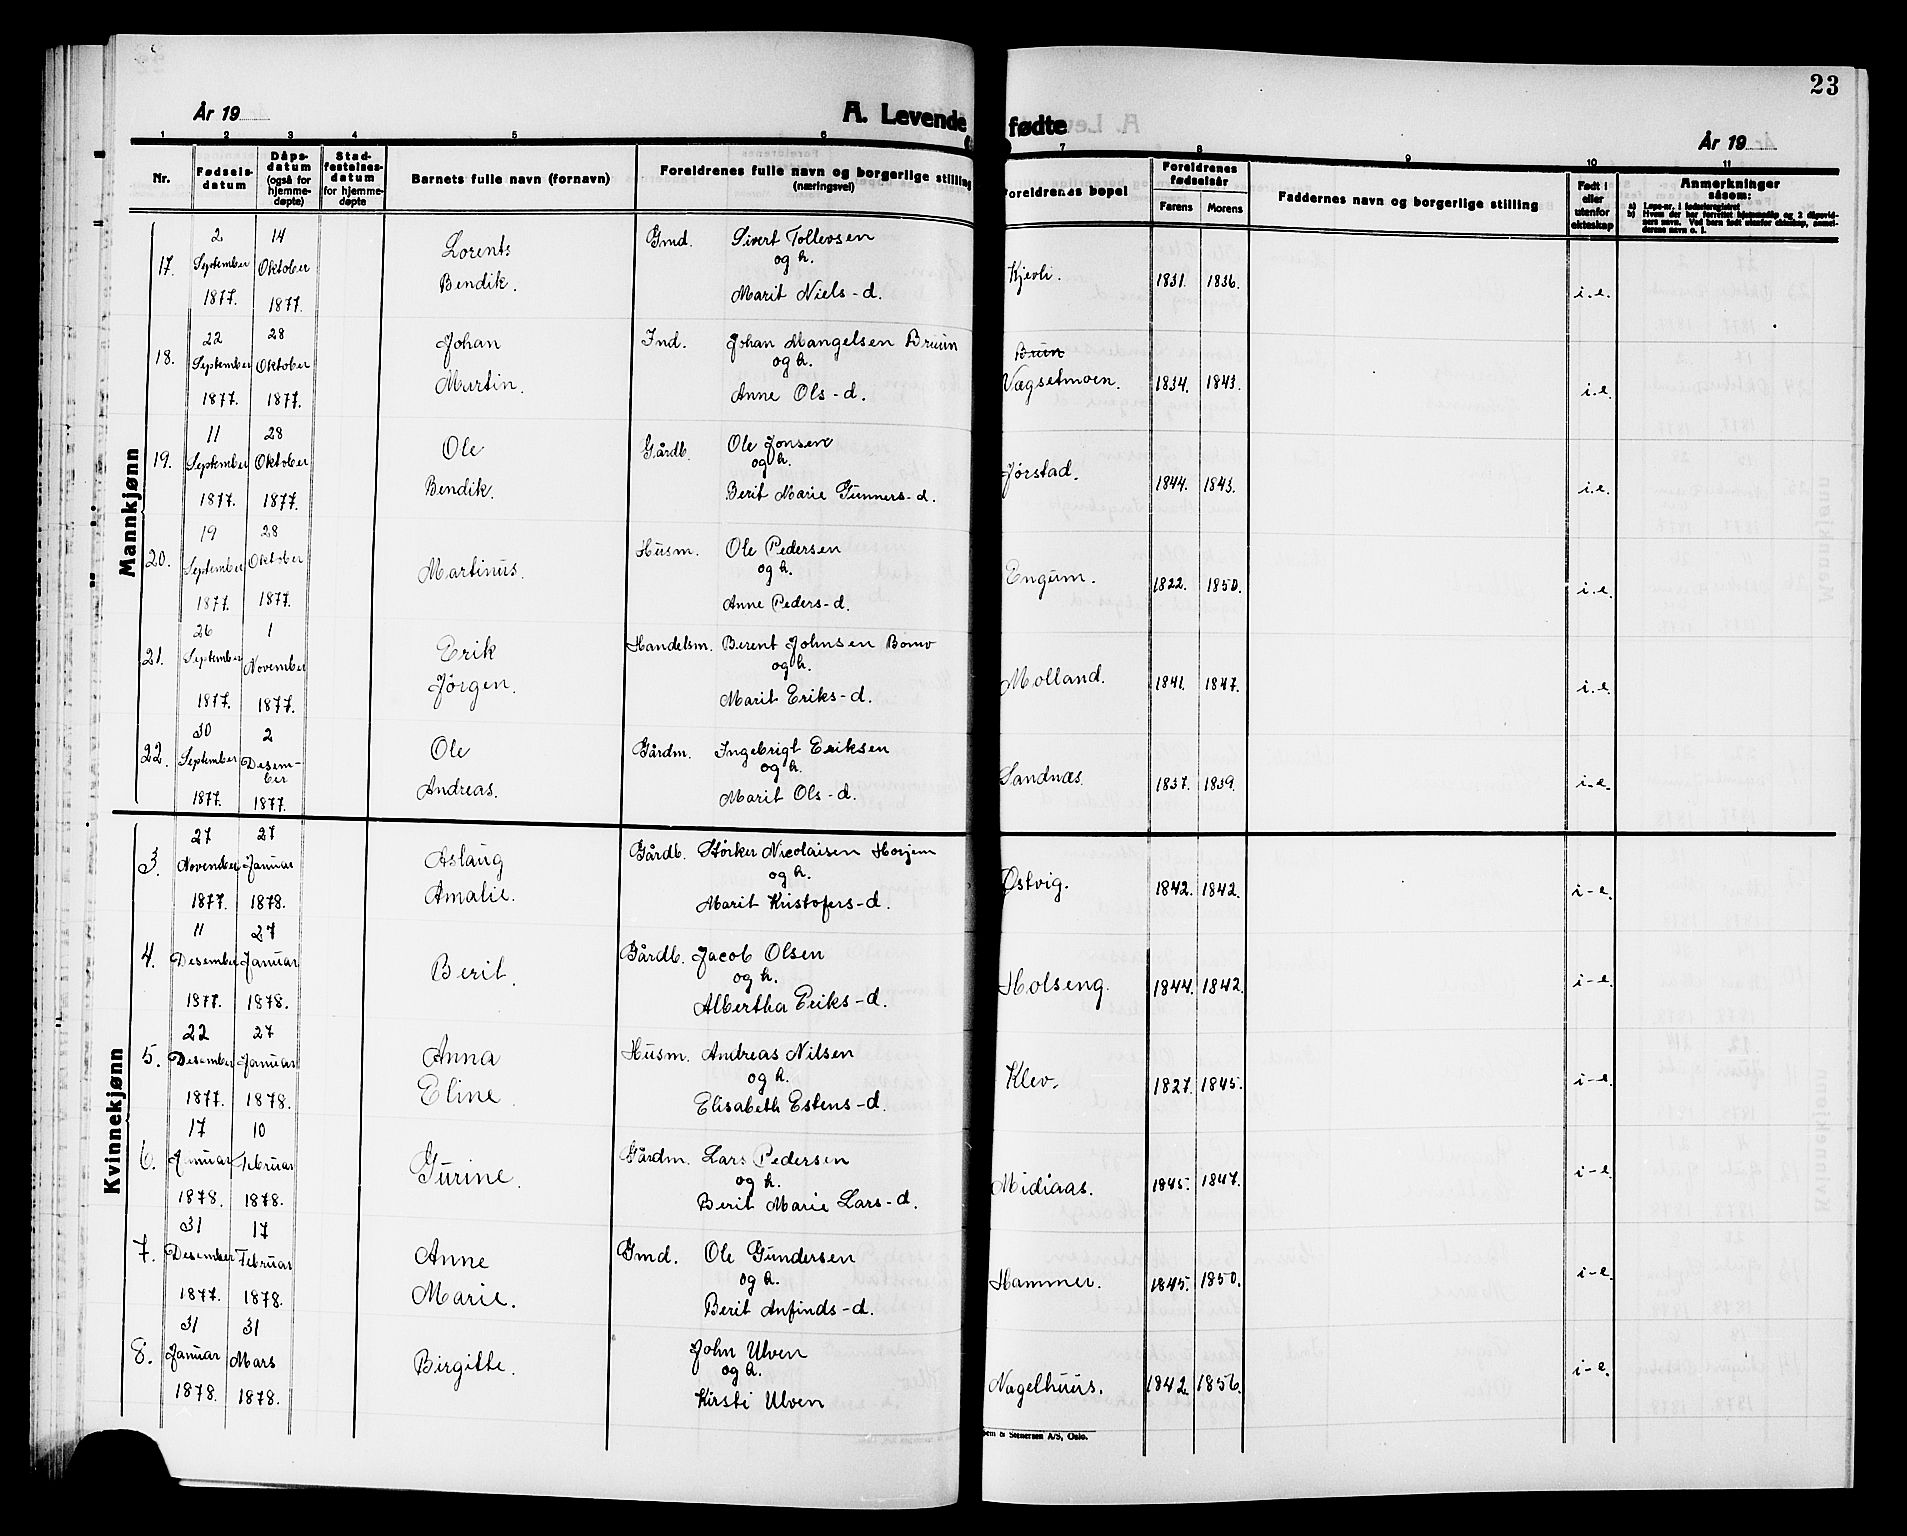 23
År 19
A. Levende fødte
År 19
1 2 3 4 5 6 7 8 9 10 11
Nr. | Fødselsdatum | Dåpsdatum (også for hjemmedøpte) | Stadfestelsesdatum for hjemmedøpte | Barnets fulle navn (fornavn) | Foreldrenes fulle navn og borgerlige stilling (næringsvei) | Foreldrenes bopel | Foreldrenes fødselsår Farens Morens | Faddernes navn og borgerlige stilling | Født i eller utenfor ekteskap | Anmerkninger såsom:
Mannkjønn
17. | 2 September 1877. | 14 Oktober 1877. | Lorents Bendik. | Gmd. Sivert Tollevsen og h. Marit Niels-d. | Kjevli. | 1831. | 1836. | i.e.
18. | 22 September 1877. | 28 Oktober 1877. | Johan Martin. | Ind. Johan Mangelsen Bruun og h. Anne Ols-d. | Bruun Vægsetmoen. | 1834. | 1843. | i.e.
19. | 11 September 1877. | 28 Oktober 1877. | Ole Bendik. | Gårdb. Ole Jonsen og h. Berit Marie Gunners-d. | Jørstad. | 1844. | 1843. | i.e.
20. | 19 September 1877. | 28 Oktober 1877. | Martinus. | Husm. Ole Pedersen og h. Anne Peders-d. | Engum. | 1822. | 1850. | i.e.
21. | 26 September 1877. | 1 November 1877. | Erik Jørgen. | Handelsm. Berent Johnsen Bomo og h. Marit Eriks-d. | Molland. | 1841. | 1847. | i-e.
22. | 30 September 1877. | 2 Desember 1877. | Ole Andreas. | Gårdm. Ingebrigt Eriksen og h. Marit Ols-d. | Sandnæs. | 1837. | 1839. | i-e.
Kvinnekjønn
3. | 27 November 1877. | 27 Januar 1878. | Aslaug Amalie. | Gårdb. Størker Nicolaisen Horjem og h. Marit Kristofers-d. | Østvig. | 1842. | 1842. | i-e.
4. | 11 Desember 1877. | 27 Januar 1878. | Berit. | Gårdb. Jacob Olsen og h. Albertha Eriks-d. | Holseng. | 1844. | 1842. | i-e.
5. | 22 Desember 1877. | 27 Januar 1878. | Anna Eline. | Husm. Andreas Nilsen og h. Elisabeth Estens-d. | Klev. | 1827. | 1845. | i-e.
6. | 17 Januar 1878. | 10 Februar 1878. | Gurine. | Gårdm. Lars Pedersen og h. Berit Marie Lars-d. | Midiaas. | 1845. | 1847. | i-e.
7. | 31 Desember 1877. | 17 Februar 1878. | Anne Marie. | Gmd. Ole Gundersen og h. Berit Anfinds-d. | Hammer. | 1845. | 1850. | i-e.
8. | 31 Januar 1878. | 31 Mars 1878. | Birgitte. | John Ulven og h. Kirsti Ulven | Nagelhuus. | 1842. | 1856. | i-e.
& Stenersen A/S, Oslo.